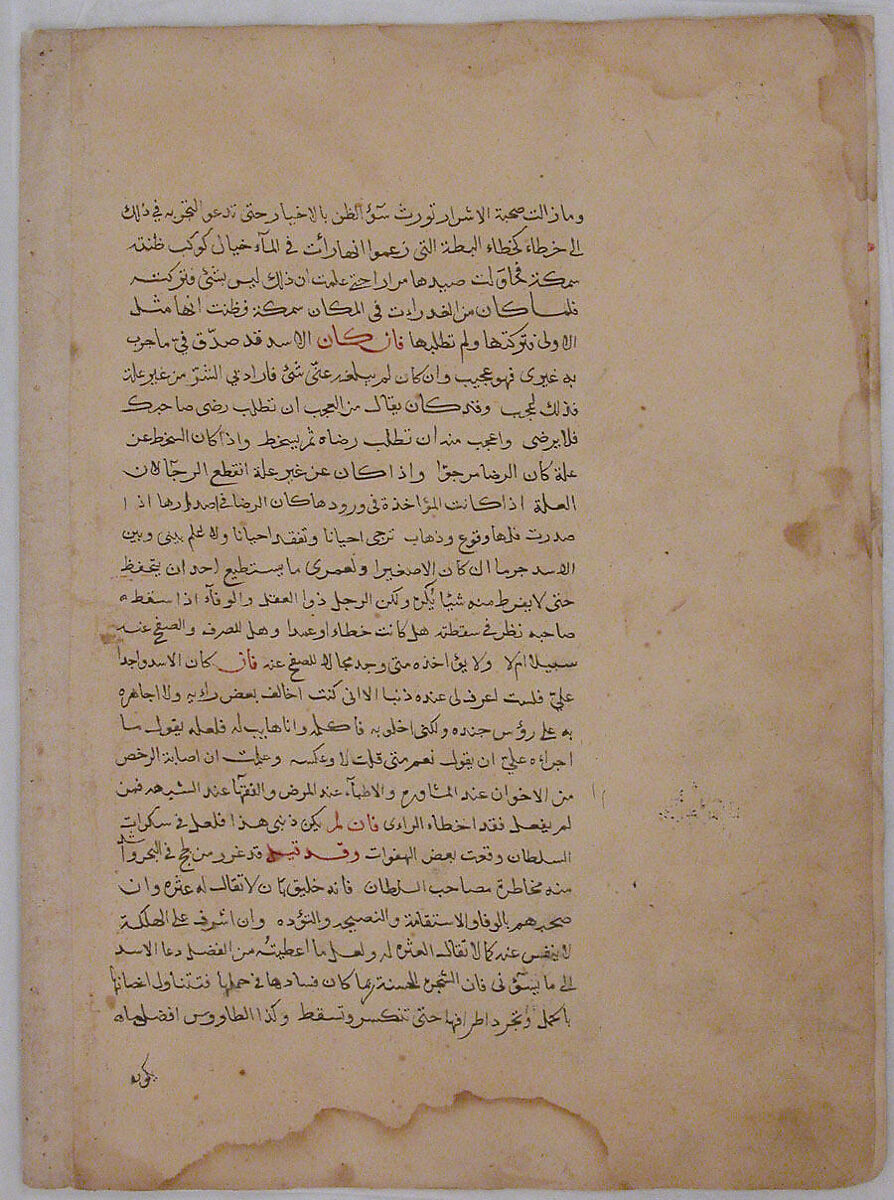 وما زالت صحبة الاشرار تورث سوٓء الظن بالاخيار حتى تدعو التجربه في ذلك
الى خطاء كخطاء البطة التي زعموا انها رأت في المآء خيال كوكب ظنته
سمكة فحاولت صيدها مرارا حتى علمت ان ذلك ليس بشئ فتركته
فلما كان من الغد رات في المكان سمكة فظنت انها مثل
الاولى فتركتها ولم تطلبها فان كان الاسد قد صدّق فيّ ما جرب
به غيري فهو عجيب وان كان لم يبلغه عنّي شئ فاراد بي الشرّ من غير علة
فذلك لعجب وقد كان يقال من العجب ان تطلب رضى صاحبك
فلا يرضى واعجب منه ان تطلب رضاه ثم يسخط واذا كان السخط عن
علة كان الرضا مرجوّا واذا كان عن غير علة انقطع الرجآ لان
العلة اذا كانت المؤاخذة في ورودها كان الرضا في اصدارها اذا
صدرت فلها وقوع وذهاب ترجى احيانا وتفقد احيانا ولا اعلم بيني وبين
الاسد جرما ان كان الا صغيرا ولعمرى ما يستطيع احد ان يتحفظ
حتى لا يفرط منه شيأ يكره ولكن الرجل ذوا العقل والوفآء اذا سقط
صاحبه نظر في سقطته هل كانت خطاء او عمدا وهل للصرف والصفح عنه
سبيلا ام لا ولا يؤاخذه متى وجد مجالا للصفح عنه فان كان الاسد واجدا
عليّ فلست اعرف لى عنده ذنبا الا انى كنت اخالف بعض رايه ولا اجاهره
به على رؤس جنده ولكني اخلو به فاكلمه وانا هايب له فلعله يقول ما
اجراءه عليّ ان يقول نعم متى قلت لا وعكسه وعلمت ان اصابة الرخص
من الاخوان عند المشاوره والاطبآء عند المرض والفقهآ عند الشبهه فمن
لم يفعل فقد اخطاء الراى فان لم يكن ذنبي هذا فلعل في سكرات
السلطان وقعت بعض الهفوات وقد قيل قد غرر من لجج في البحر واشد
منه مخاطرة مصاحب السلطان فانه خليق بان لا تقال له عثره وان
صحبهم بالوفا والاستقامة والنصيحه والتؤده وان اشرف على الهلكة
لا ينفس عنه كما لا تقال العثره له ولعل ما اعطيته من الفضل دعا الاسد
الى ما يسوٓء ني فان الشجره الحسنة ربما كان فسادها في حملها فتتناول اغصانها
بالحمل وتجرد اطرافها حتى تنكسر وتسقط وكذا الطاووس افضل ماله
يكون